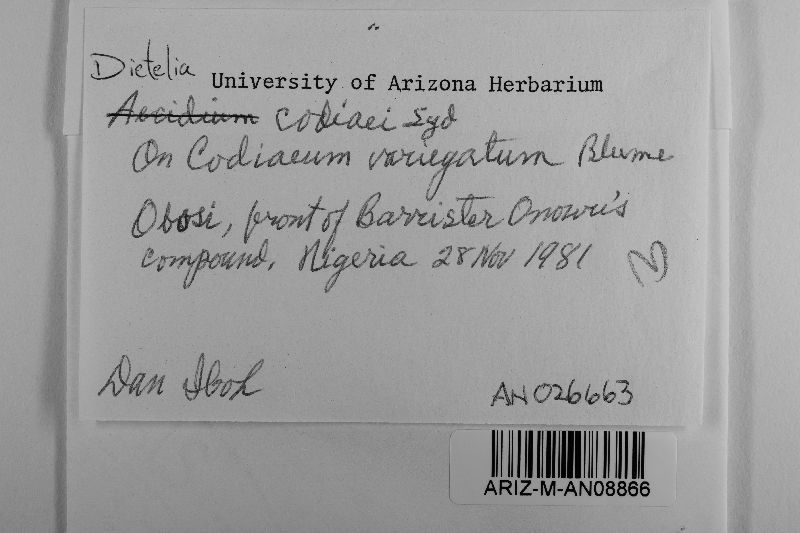 Dietelia
University of Arizona Herbarium
Aecidium codiaei Syd
On Codiaeum variegatum Blume
Obosi, front of Barrister Onowu's
compound, Nigeria 28 Nov 1981
Dan Iboh
AN 026663
ARIZ-M-AN08866